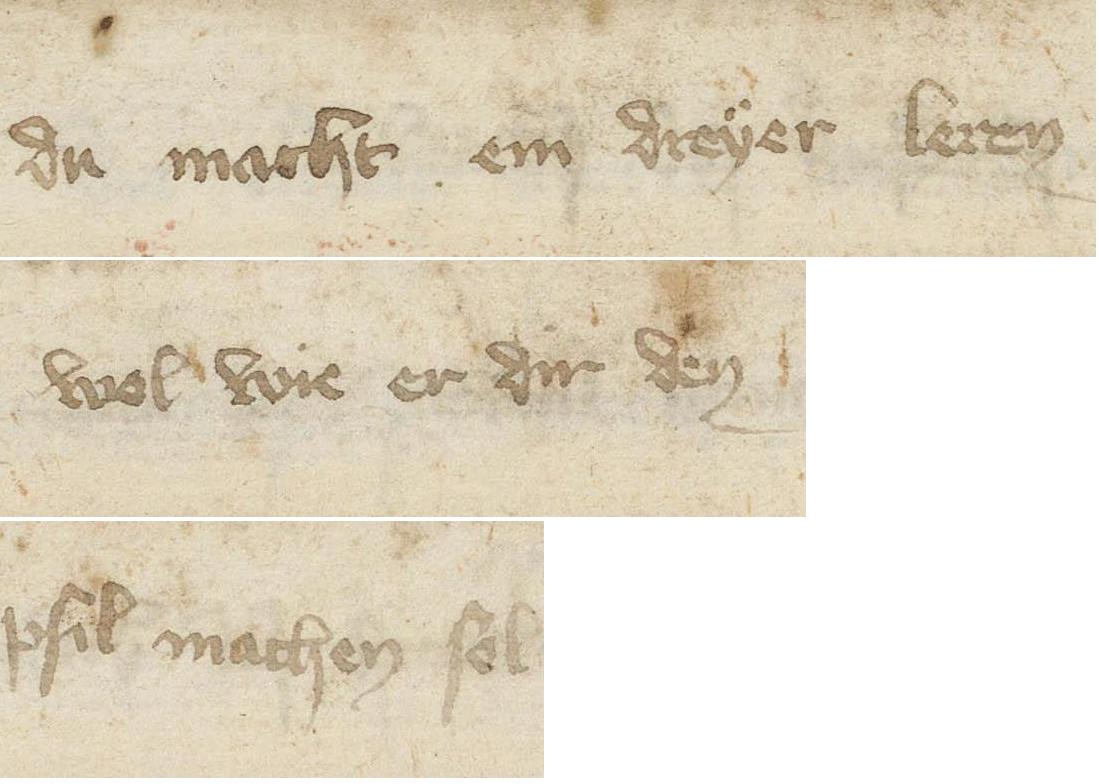 du macht ein dreÿer leren
wol wie er dir den
pfil machen sol